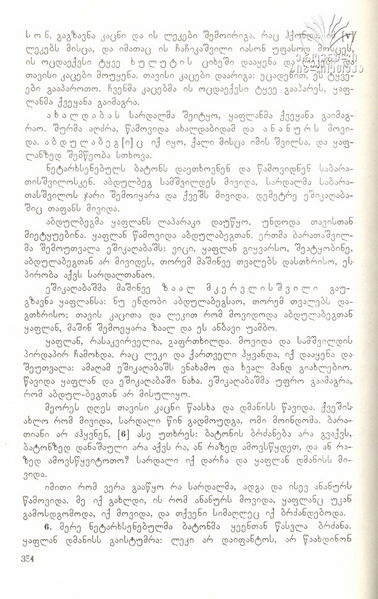 ს ო ნ. გაგზავნა კაცნი და ის ლეკები შემოირიგა, რაც ჰქონდა, იმ [v]
ლეკებს მისცა, და იმათაც ის ჩაჩიკაშვილი იასონ უფასოდ მოსცეს,
ის ოცდაექვსი ტყვე ხ უ ლ უ ტ ი ს ციხეში დააყენა და
თავისი კაცები მოუყენა. თავისი კაცები დაარიგა: ეცადენით, ეს ტყვე-
ები გააპაროთო. ჩვენმა კაცებმა ის ოცდაექვსი ტყვე გააპარეს, ყაფ-
ლანმა ქვეყანა გაიმაგრა.
ა ხ ა ლ დ ა ბ ა ს სარდალმა შეიტყო, ყაფლანმა ქვეყანა გაიმაგ-
რაო. შურმა აღძრა, წამოვიდა ახალდაბიდამ და ა ნ ა ნ უ რ ს მოვი-
და. ა ბ დ უ ლ ა ბ ე გ [ი] ც იქ იყო, ქალი მისცა იმის შვილსა, და ყაფ-
ლანზედ შემწეობა სთხოვა.
ნეტარხსენებულს ბატონს დაეთხოვნენ და წამოვიდნენ საბარა-
თისშვილოსკენ. აბდულბეგ სამშვილდეს მივიდა, სარდალმა საბარა-
თასშვილოს ჯარი შემოიყარა და ქვეშს მივიდა. დემეტრე ეშიკაღაბა-
შიც თაფანს მივიდა.
აბდულბეგმა ყაფლანს ლაპარაკი დაუწყო, უნდოდა თავისთან
მიეტყუებინა. ყაფლან წამოვიდა აბდულაბეგთან. ერთმა ბარათაშვილ-
მა შემოუთვალა ეშიკაღაბაშს: ვიცი, ყაფლან გიყვარსო, შეატყობინე,
აბდულაბეგთან არ მივიდეს, თორემ მაშინვე თვალებს დასთხრისო, ეს-
პირობა აქვს სარდალთანაო.
ეშიკაღაბაშმა მაშინვე ზ ა ა ლ მ კ ე რ ვ ლ ი ს შ ვ ი ლ ი გაუ-
გზავნა ყაფლანსა: ნუ ენდობი აბდულაბეგსაო, თორემ თვალებს და-
გთხრისო; თავის კაცითა და ლეკით რომ მივიდოდა აბდულაბეგთან
ყაფლან, მაშინ შემოეყარა ზაალ და ეს ანბავი უამბო.
ყაფლან, რასაკვირველია, გაფრთხილდა. მოვიდა და სამშვილდის
პირდაპირ ჩამოხდა. რაც ლეკი და ქართველი ჰყვანდა, იქ დააყენა და
შეუთვალა: ამაღამ ეშიკაღაბაშს ვნახამო და ხვალ მანდ გიახლებიო.
წავიდა ყაფლან და ეშიკაღაბაში ნახა. ეშიკაღაბაშმა უფრო გაამაგრა,
რომ აბდულ-ბეგთან არ მისულიყო.
მეორეს დღეს თავისი კაცნი წაასხა და დმანისს წავიდა. ქვეშის-
ახლო რომ მივიდა, სარდალი წინ გადმოუდგა, ომი მოინდომა. ბარა-
თიანი არ აჰყვნენ, [6] ასე უთხრეს: ბატონის ბრძანება არა გვაქვს,
ბატონზედ დანაშაული არა აქვს რა, ან რაზედ ამოვსწყდეთ, და ან რა-
ზედ ამოვსწყვიტოთო? სარდალი იქ დარჩა და ყაფლან დმანისს მი-
ვიდა.
იმითი რომ ვერა გააწყო რა სარდალმა, ადგა და ისევ ანანურს
წამოვიდა. მე იქ გახლდი, ის რომ ანანურს მოვიდა, ყაფლანც უკან
გამოსდგომოდა, იქ მოვიდა, და თქვენი სიმაღლეც იქ ბრძანდებოდა.
6. მერე ნეტარხსენებულმა ბატონმა ყეენთან წასვლა ბრძანა.
ყაფლან დმანისს გაისტუმრა: ლეკი არ დაიფანტოს, არ წაახდინონ
354